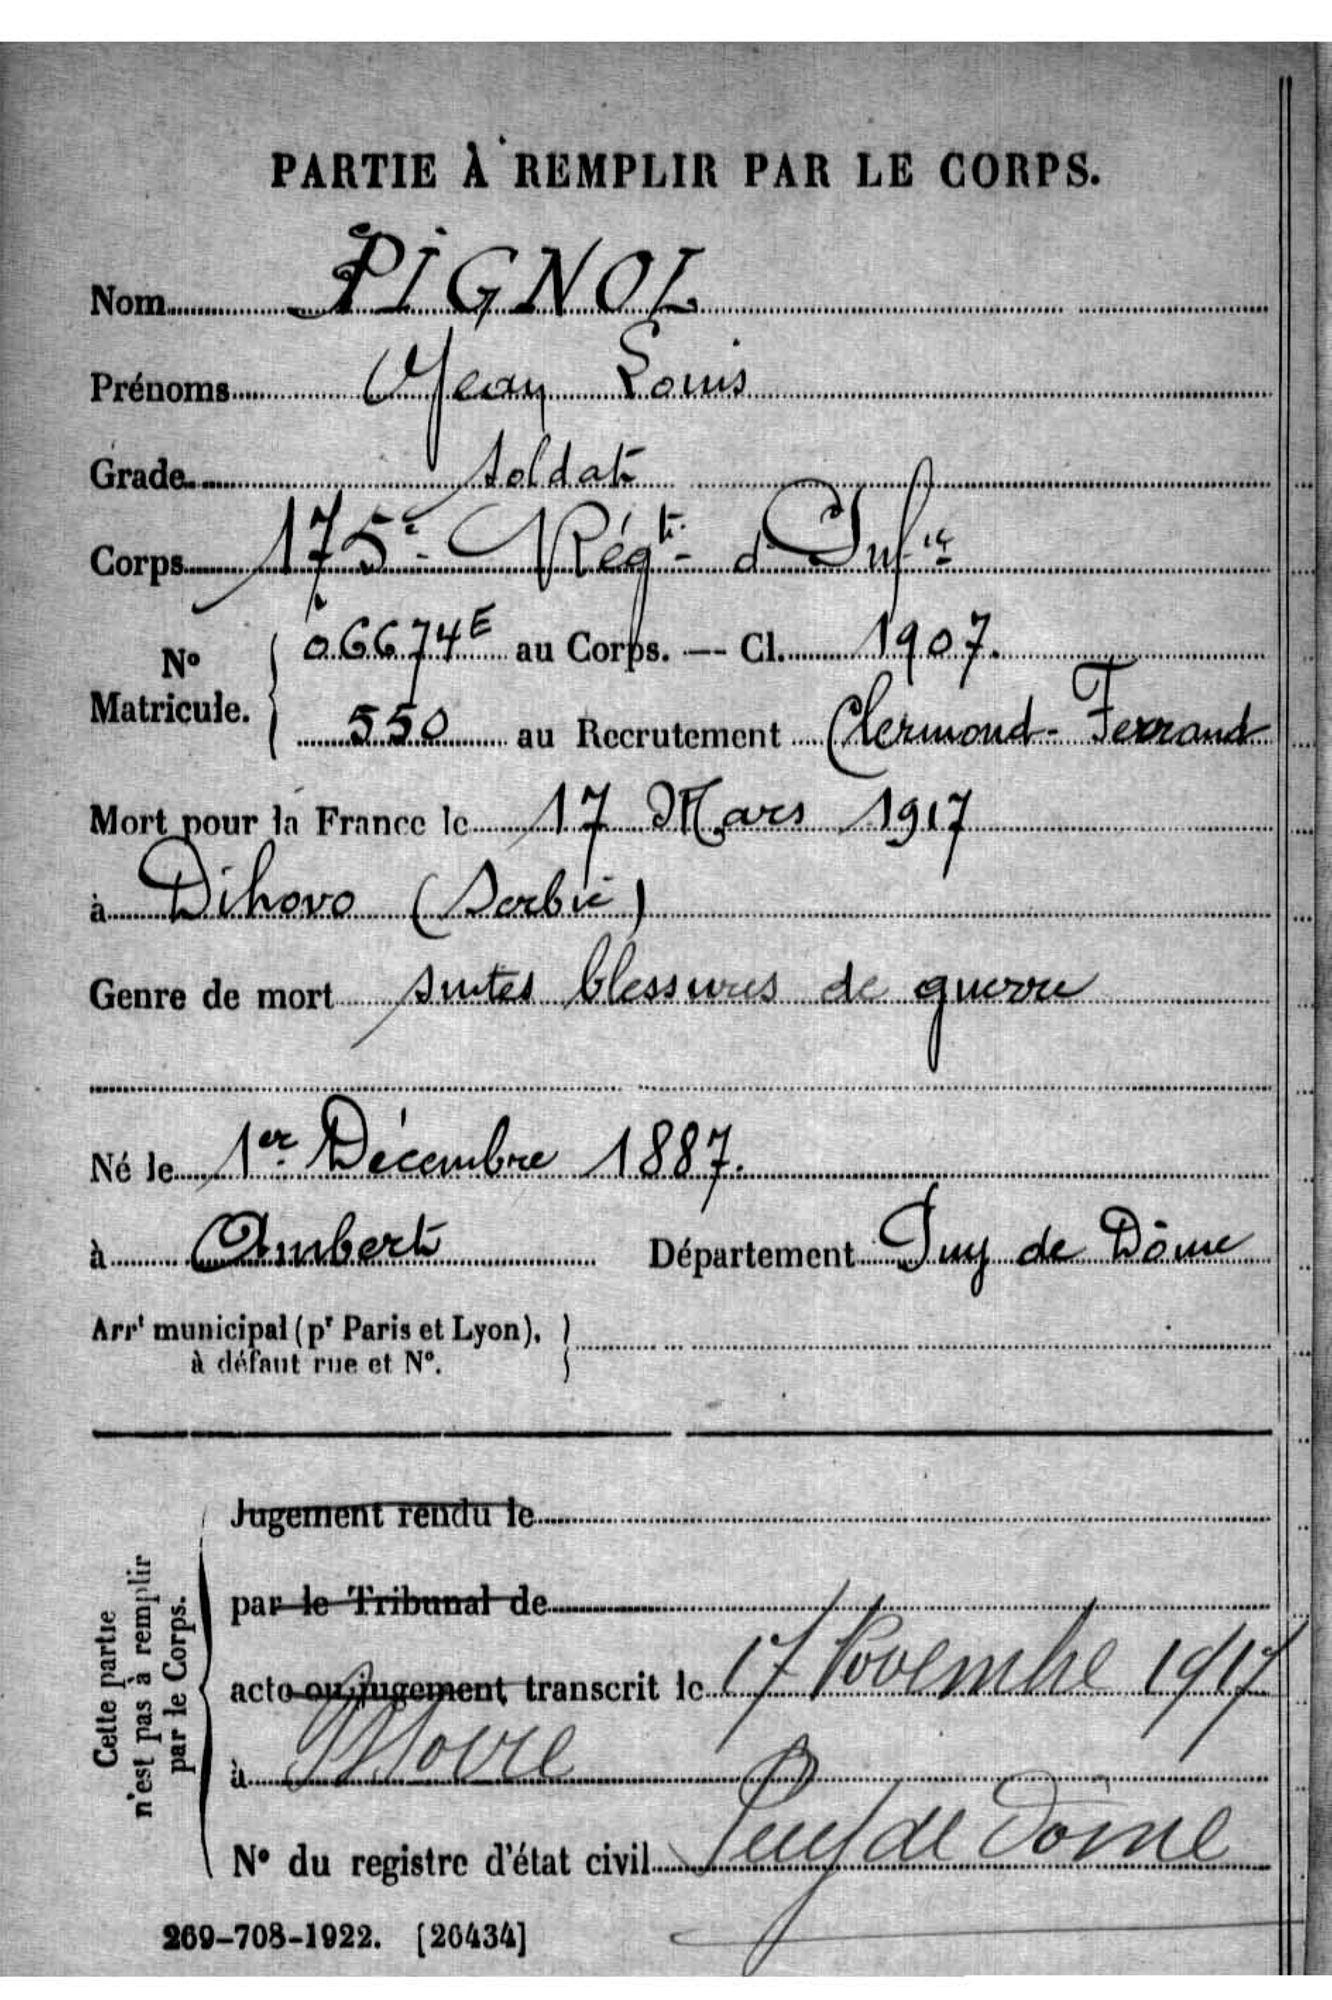 PARTIE À REMPLIR PAR LE CORPS.
Nom PIGNOL
Prénoms Jean Louis
Grade soldat
Corps 175e Régt d'Infie
No Matricule. 06674E au Corps. — Cl. 1907.
550 au Recrutement Clermond-Ferrand
Mort pour la France le 17 Mars 1917
à Dihovo (Serbie)
Genre de mort suites blessures de guerre
Né le 1er Décembre 1887.
à Ambert Département Puy de Dôme
Arrt municipal (pr Paris et Lyon),
à défaut rue et No.
Cette partie n'est pas à remplir par le Corps.
Jugement rendu le
par le Tribunal de
acte ou jugement transcrit le 17 Novembre 1917
à
No du registre d'état civil Puy de Dôme
269-708-1922. [26434]